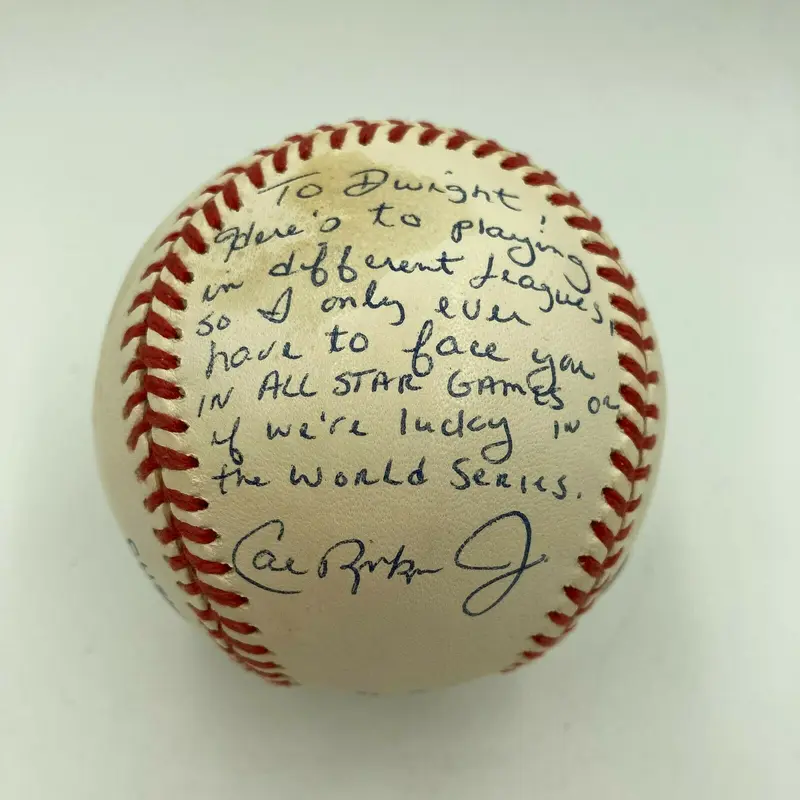 To Dwight,
Here's to playing
in different Leagues,
so I only ever
have to face you
IN ALL STAR GAMES OR
if we're lucky IN
the WORLD SERIES.
Cal Ripken Jr